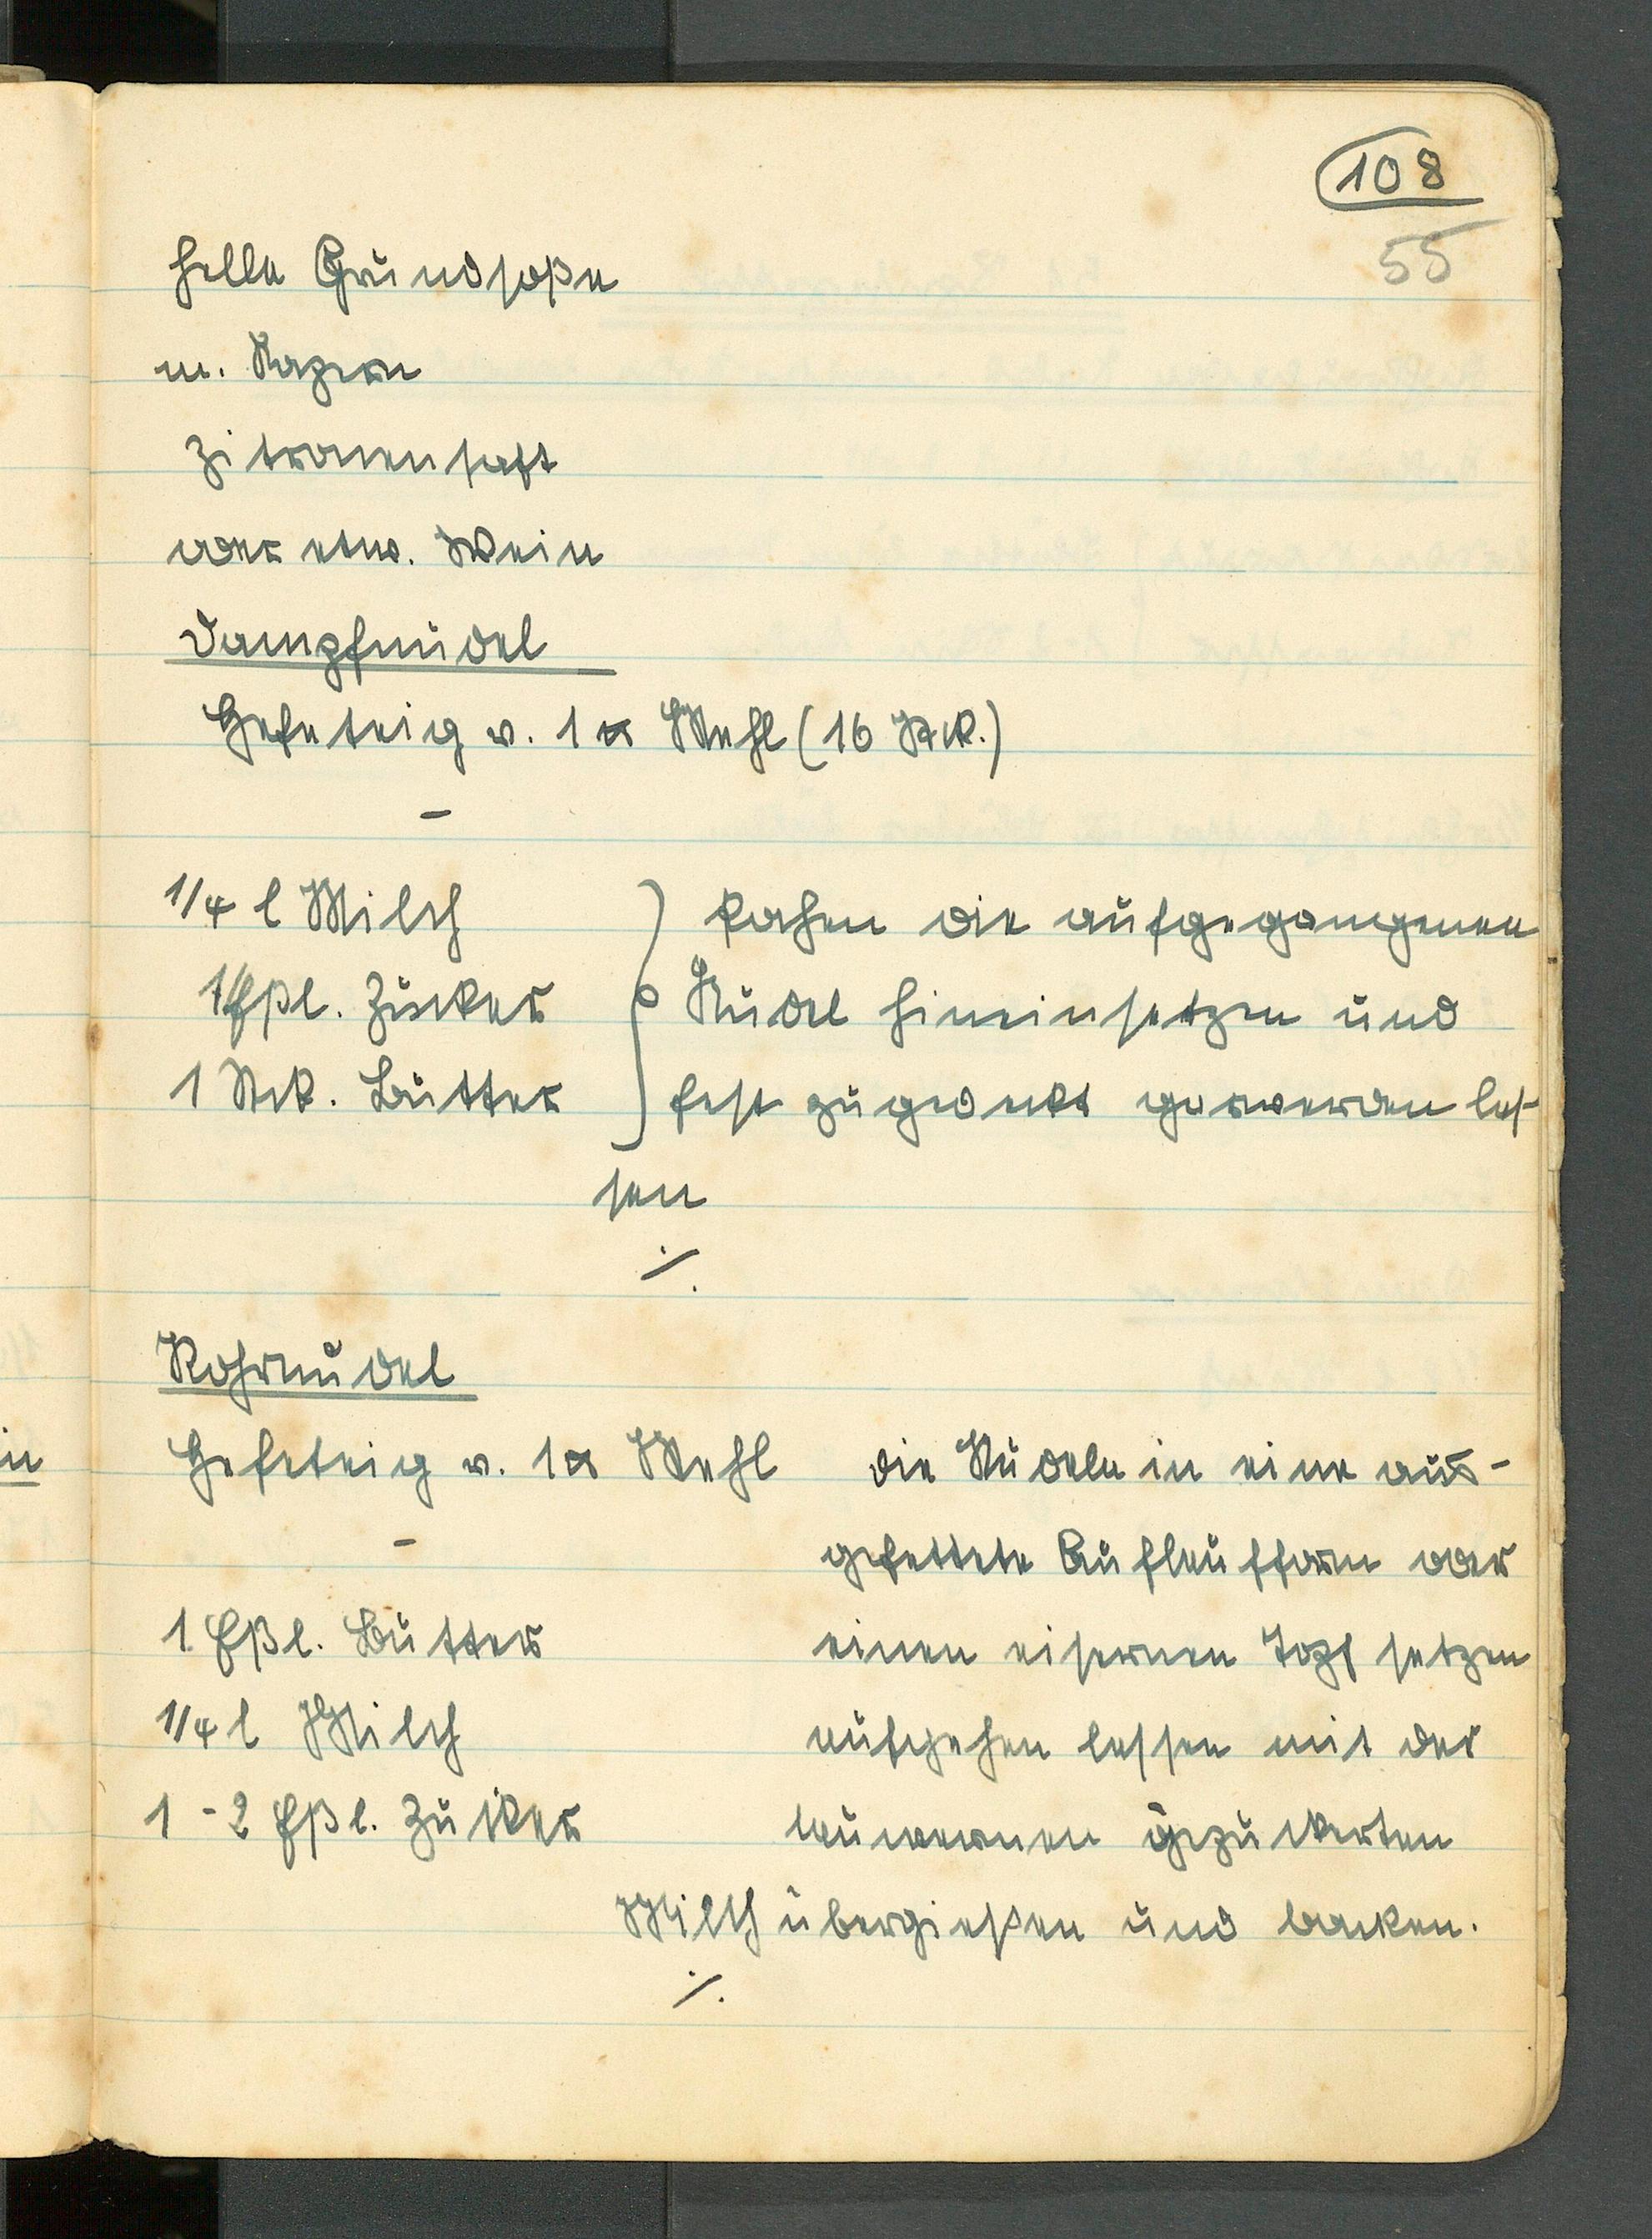 108
55
helle Grundsoße
m. Kapern
Zitronensaft
oder etw. Wein
Dampfnudel
Hefeteig v. 1 ℔ Mehl (16 Stck.)
-
1/4 l Milch
1 Eßl. Zucker
1 Stck. Butter
kochen die aufgegangenen
Nudel hineinsetzen und
fest zugedeckt garwerden las-
sen
./.
Rohrnudel
Hefeteig v. 1 ℔ Mehl
-
1 Eßl. Butter
1/4 l Milch
1 - 2 Eßl. Zucker
die Nudeln in eine aus-
gefettete Auflaufform oder
einen eisernen Topf setzen
aufgehen lassen mit der
lauwarmen gezuckerten
Milch übergießen und backen.
./.